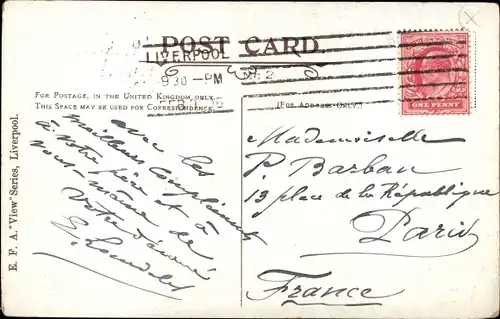 POST CARD.
LIVERPOOL
9.30-PM
FEB
FOR POSTAGE, IN THE UNITED KINGDOM ONLY,
THIS SPACE MAY BE USED FOR CORRESPONDENCE.
(FOR ADDRESS ONLY.)
ONE PENNY
E. F. A. "View" Series, Liverpool.
avec les
meilleurs compliments
à votre père et à
vous-même de
votre dévoué
Mademoiselle
P. Barbau
13 place de la République
Paris
France